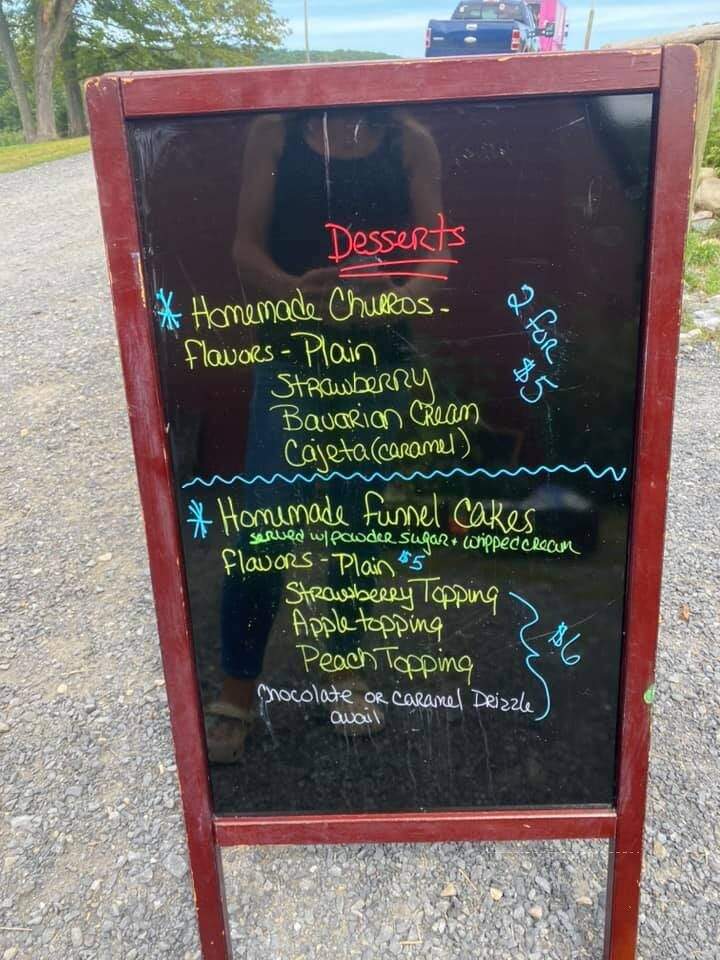 Desserts
* Homemade Churros -
2 for $5
Flavors - Plain
Strawberry
Bavarian Cream
Cajeta (caramel)
* Homemade Funnel Cakes
served w/ powder sugar + whipped cream
Flavors - Plain $5
Strawberry Topping
Apple topping
Peach Topping
$6
Chocolate or caramel Drizzle
avail